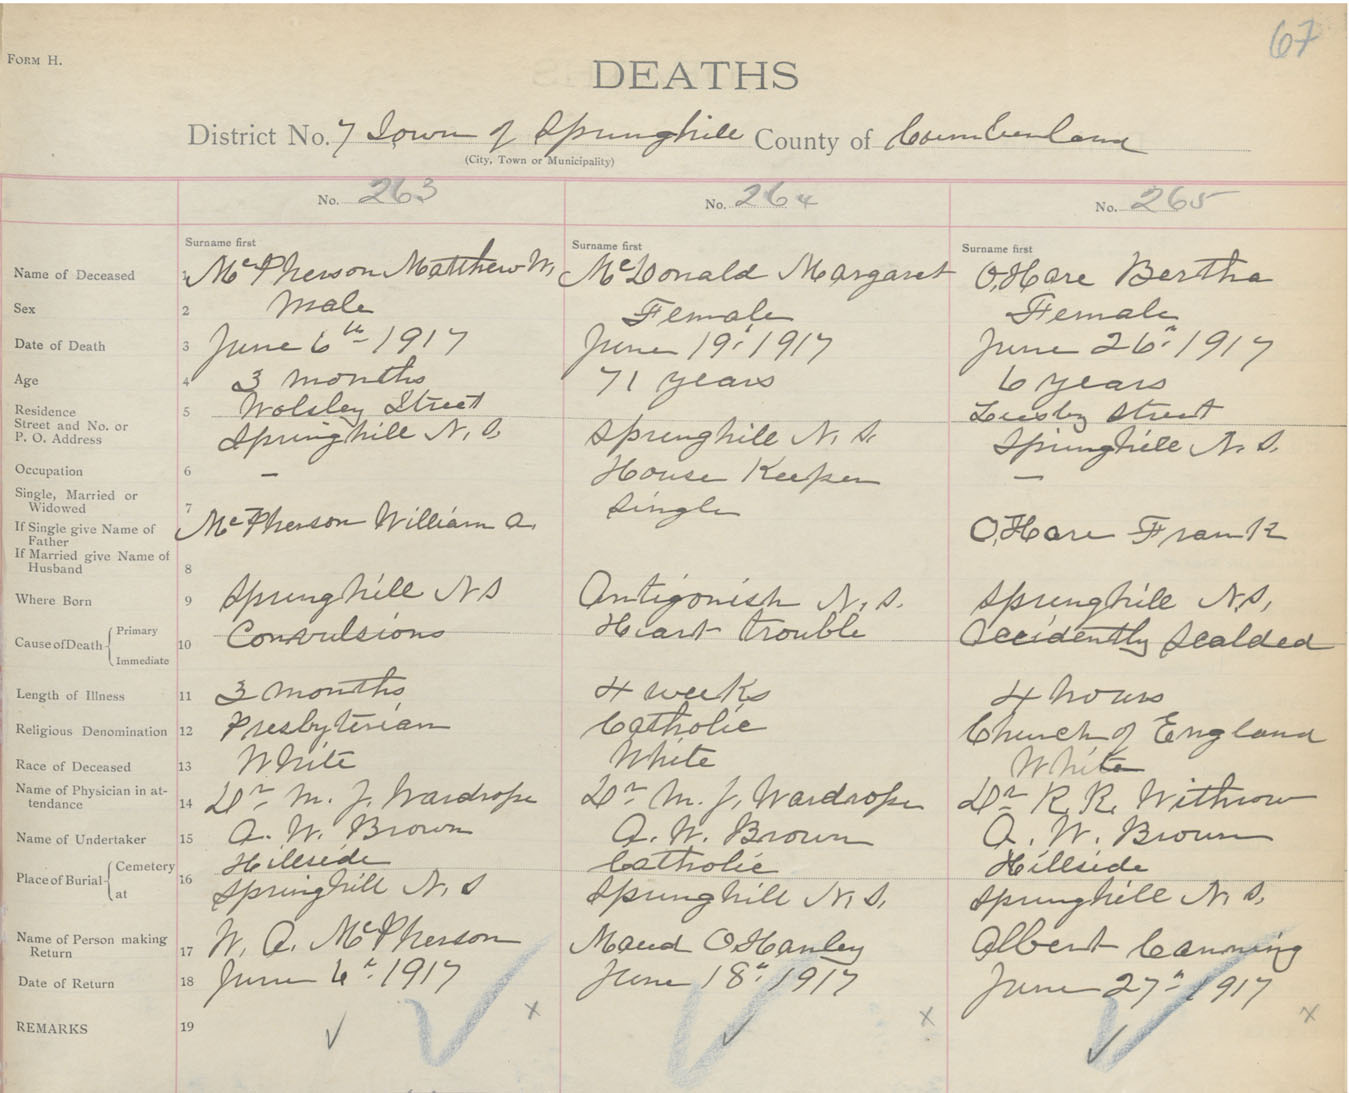 67
FORM H.
DEATHS
District No. 7 Town of Springhill County of Cumberland
(City, Town or Municipality)
No. 263 No. 264 No. 265
Surname first Surname first Surname first
Name of Deceased 1 McPherson Matthew W. McDonald Margaret O'Hare Bertha
Sex 2 Male Female Female
Date of Death 3 June 6th 1917 June 19" 1917 June 26" 1917
Age 4 3 months 71 years 6 years
Residence 5 Wolsley Street street
Street and No. or
P. O. Address Springhill N. S. Springhill N. S. Springhill N. S.
Occupation 6 – House Keeper –
Single, Married or
Widowed 7 Single
If Single give Name of
Father McPherson William A. O'Hare Frank
If Married give Name of
Husband 8
Where Born 9 Springhill N S Antigonish N. S. Springhill N.S.
Cause of Death { Primary
Immediate 10 Convulsions Heart trouble Accidently Scalded
Length of Illness 11 3 months 4 weeks 4 hours
Religious Denomination 12 Presbyterian Catholic Church of England
Race of Deceased 13 White White White
Name of Physician in at-
tendance 14 Dr M. J. Wardrope Dr M. J. Wardrope Dr R. R. Withrow
Name of Undertaker 15 A. W. Brown A. W. Brown A. W. Brown
Place of Burial { Cemetery 16 Hillside Catholic Hillside
at Springhill N. S Springhill N. S. Springhill N. S.
Name of Person making
Return 17 W. A. McPherson Maud O'Hanley Albert Canning
Date of Return 18 June 6" 1917 June 18" 1917 June 27" 1917
REMARKS 19 ✓ x ✓ x ✓ x